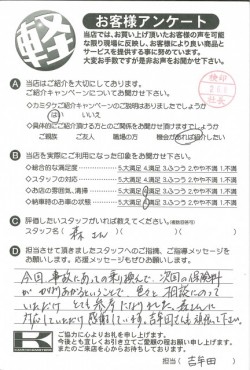 軽
お客様アンケート
当店では、お買い上げ頂いたお客様の声を可能
な限り現場に反映し、お客様により良い商品と
サービスを提供する事に努めています。
大変お手数ですが是非お声をお聞かせ下さい。
A 当店はご紹介を大切にしております。
ご紹介キャンペーンについてお聞かせ下さい。
◇カミタケご紹介キャンペーンのご説明はありましたでしょうか
はい いいえ
◇具体的にご紹介頂ける方とのご関係をお聞かせ頂けますでしょうか
ご親族 ご友人 職場の方 機会があればご紹介したい
B 当店を実際にご利用になった印象をお聞かせ下さい。
◇総合的な満足度 5.大満足 4.満足 3.ふつう 2.やや不満 1.不満
◇スタッフの対応 5.大満足 4.満足 3.ふつう 2.やや不満 1.不満
◇お店の雰囲気、清掃 5.大満足 4.満足 3.ふつう 2.やや不満 1.不満
◇納車時のお車の状態 5.大満足 4.満足 3.ふつう 2.やや不満 1.不満
C 評価したいスタッフがいれば教えてください。(複数回答可)
スタッフ名( 森さん )
D 担当させて頂きましたスタッフへのご指摘、ご指導メッセージを
お願いします。応援メッセージもぜひお願いします。
今回 事故にあっての乗り換えで、次回の保険料
が かなりあがるということで 色々と 相談にのって
いただけて とても 参考になりました。森さんに
対応していただけ 感謝しています。吉年田さんも 頑張って下さい。
ご協力に心よりお礼を申し上げます。
今後とも宜しくお引き立てご愛顧の程お願い申し上げます。
またのご来店を心からお待ちしております。
担当( 吉年田 )